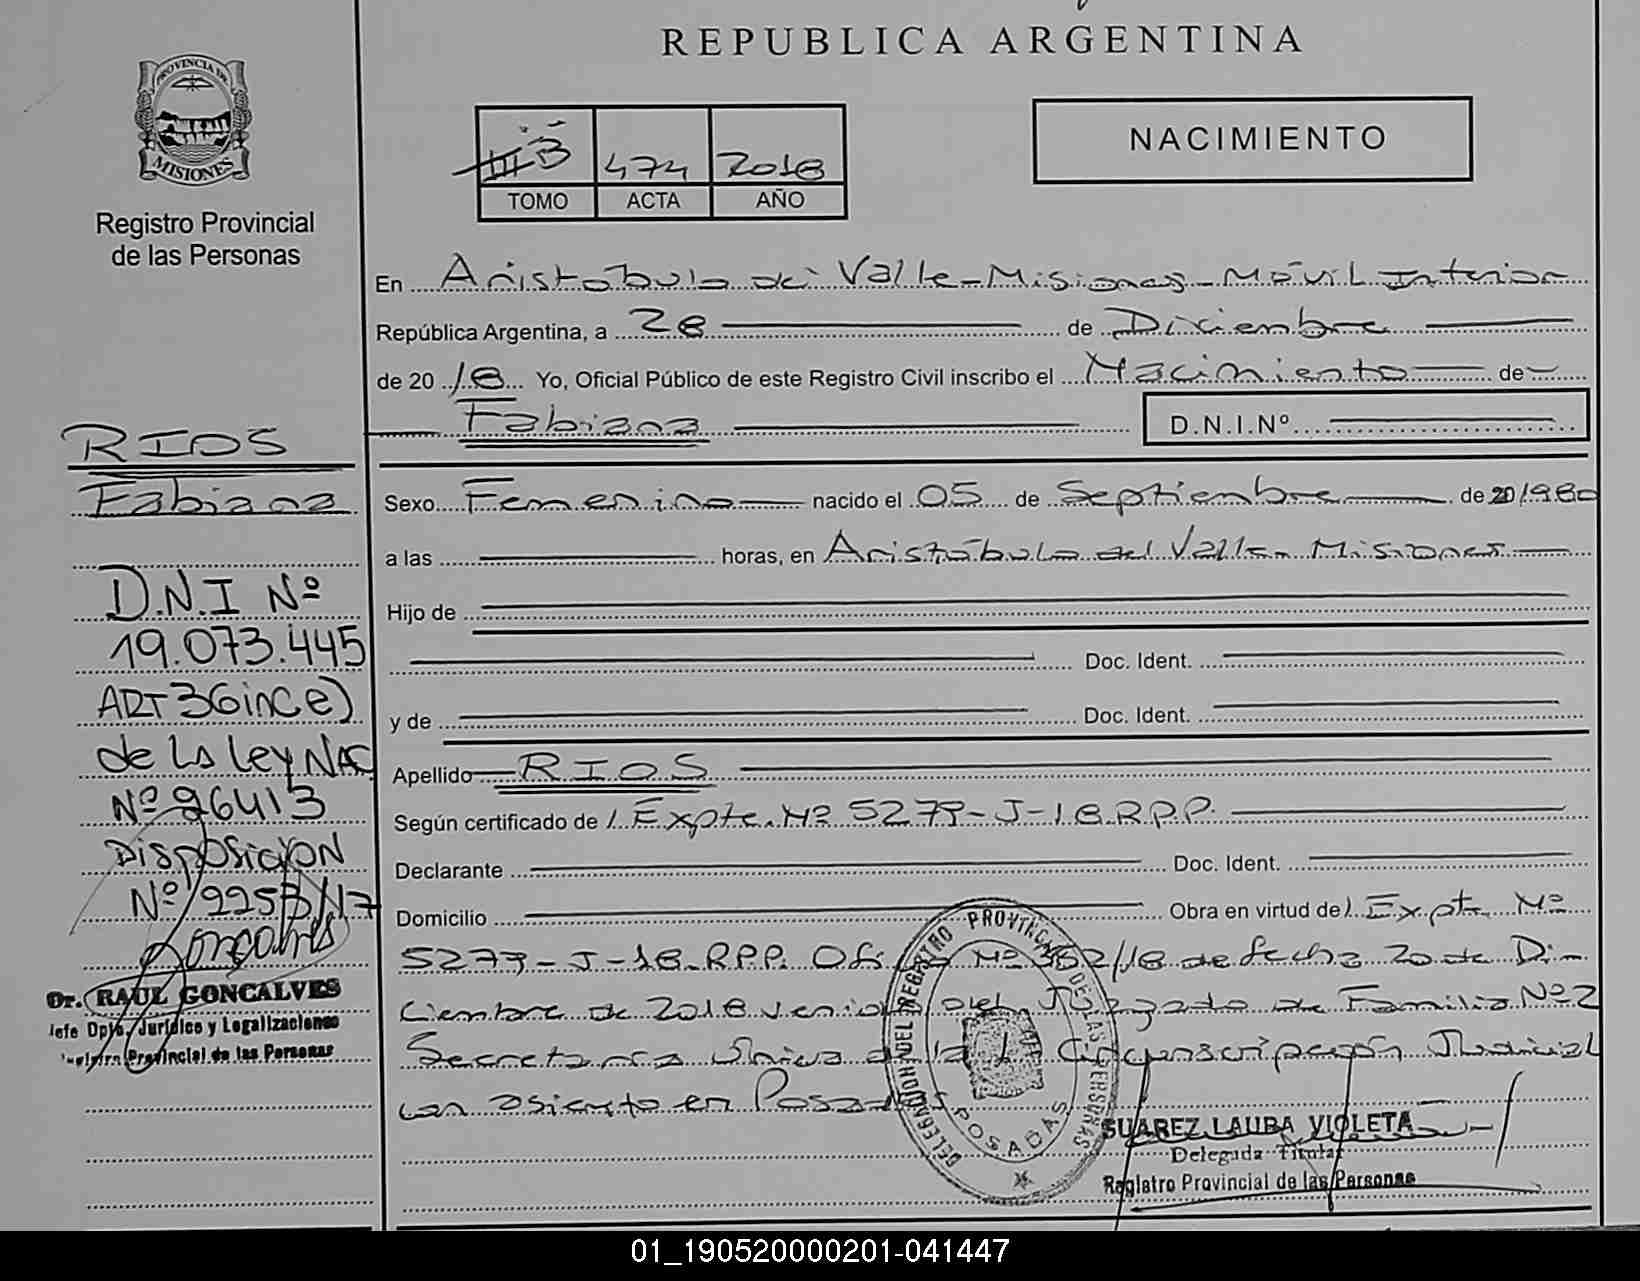 REPUBLICA ARGENTINA
PROVINCIA DE
MISIONES
Registro Provincial
de las Personas
B 474 2018
TOMO ACTA AÑO
NACIMIENTO
En Aristóbulo del Valle - Misiones - Móvil Interior
República Argentina, a 28 de Diciembre
de 2018 Yo, Oficial Público de este Registro Civil inscribo el Nacimiento de
Fabiana D.N.I.Nº
Sexo Femenino nacido el 05 de Septiembre de 20 1980
a las horas, en Aristóbulo del Valle - Misiones
Hijo de
Doc. Ident.
y de Doc. Ident.
Apellido RIOS
Según certificado de Expte. Nº 5279-J-18.R.P.P.
Declarante Doc. Ident.
Domicilio Obra en virtud de Expte. Nº
5279-J-18.R.P.P. Nº 362/18 de fecha 20 de Di-
ciembre de 2018 venido del Juzgado de Familia Nº 2
Secretaria Única de la Circunscripción Judicial
con asiento en Posadas
RIOS
Fabiana
D.N.I Nº
19.073.445
ART 36 inc e)
de la Ley NAC
Nº 26413
Disposicion
Nº 2253/17
Dr. RAUL GONCALVES
Jefe Dpto. Jurídico y Legalizaciones
Registro Provincial de las Personas
DELEGACION DEL REGISTRO PROVINCIAL DE LAS PERSONAS
POSADAS
SUAREZ LAURA VIOLETA
Delegada Titular
Registro Provincial de las Personas
01_190520000201-041447